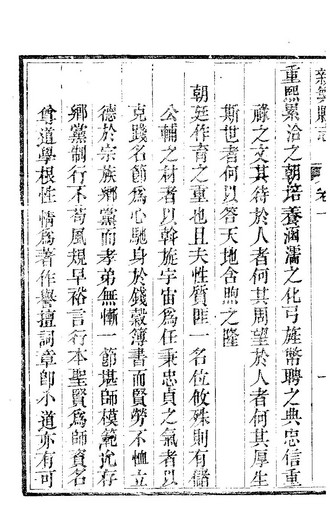 新樂縣志 卷一
重熙累洽之朝培養涵濡之化弓旌幣聘之典忠信重
祿之文其待於人者何其周望於人者何其厚生
斯世者何以答天地含煦之隆
朝廷作育之重也且夫性質匪一名位攸殊則有儲
公輔之材者以斡旋宇宙為任秉忠貞之氣者以
克踐名節為心馳身於錢穀簿書而賢勞不恤立
德於宗族鄉黨而孝弟無慚一節堪師模範允存
鄉黨制行不苟風規早裕言行本聖賢為師資名
實道學根性情為著作譽擅詞章即小道亦有可